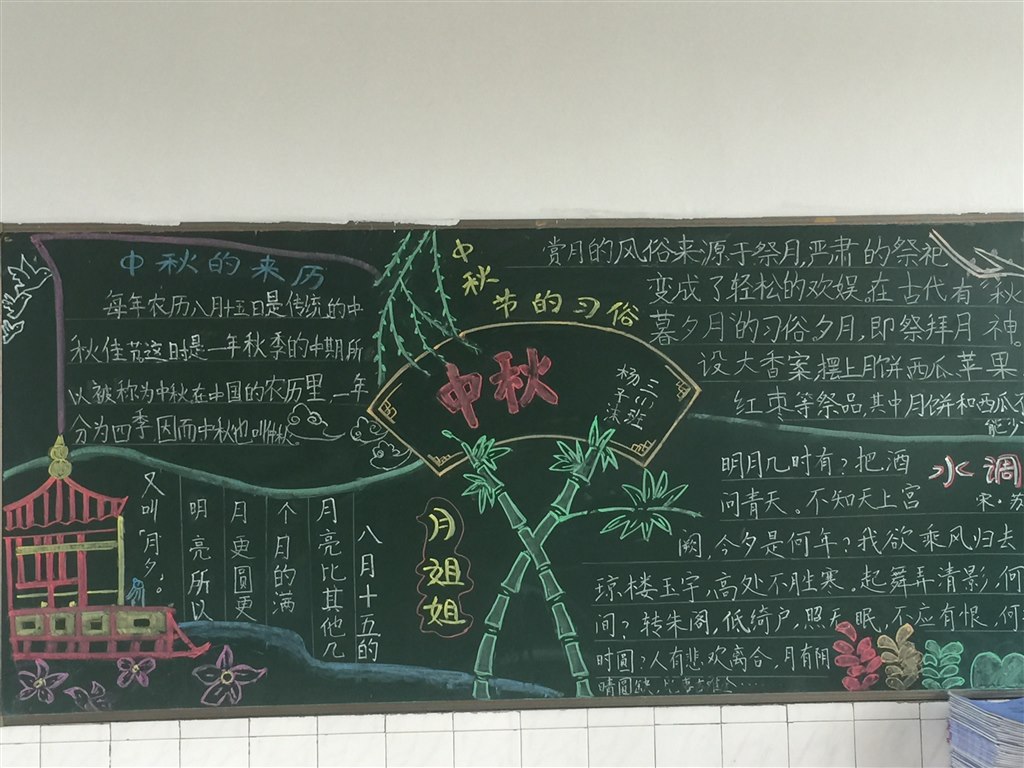 中秋的来历
每年农历八月十五日是传统的中
秋佳节这日是一年秋季的中期所
以被称为中秋在中国的农历里,一年
分为四季因而中秋也叫仲秋
八月十五的
月亮比其他几
个月的满
月更圆更
明亮所以
又叫「月夕」。
月姐姐
中秋
三(二)班
中秋节的习俗
赏月的风俗来源于祭月,严肃的祭祀
变成了轻松的欢娱。在古代有秋
暮夕月的习俗夕月,即祭拜月神。
设大香案摆上月饼西瓜苹果
红枣等祭品,其中月饼和西瓜
能少
水调
宋·苏
明月几时有?把酒
问青天。不知天上宫
阙,今夕是何年?我欲乘风归去
琼楼玉宇,高处不胜寒。起舞弄清影,何
间?转朱阁,低绮户,照无眠,不应有恨,何
时圆?人有悲欢离合,月有阴
晴圆缺